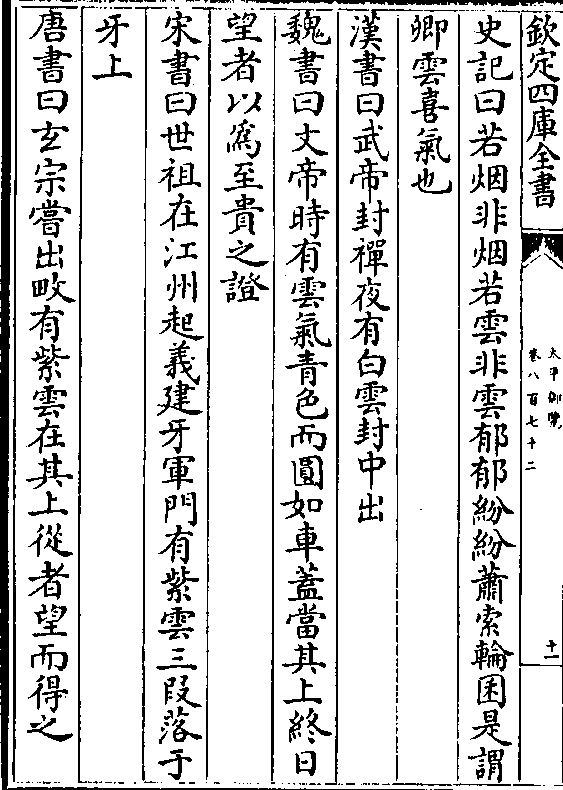 欽定四庫全書
太平御覽
卷八百七十二
十一
史記曰若烟非烟若雲非雲郁郁紛紛蕭索輪囷是謂
卿雲喜氣也
漢書曰武帝封禪夜有白雲封中出
魏書曰文帝時有雲氣青色而圓如車蓋當其上終日
望者以為至貴之證
宋書曰世祖在江州起義建牙軍門有紫雲三段落于
牙上
唐書曰玄宗嘗出畋有紫雲在其上從者望而得之